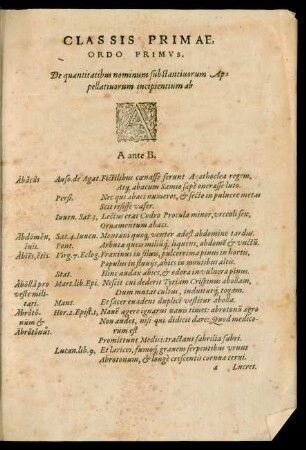 CLASSIS PRIMAE,
ORDO PRIMVS,
De quantitatibus nominum substantiuorum Ap-
pellatiuorum incipientium ab
A
A ante B.
Abăcŭs Auso. de Agat. Fictilibus cœnasse ferunt Agathoclea regem,
Atq; abacum Samio sæpè onerasse luto.
Persi. Nec qui abaci numeros, & secto in puluere metas
Scit risisse vafer.
Iuuen. Sat. 3. Lectus erat Codro Procula minor, vrceoli sex,
Ornamentum abaci.
Abdōmĕn, Sat. 4. Iuuen. Montani quoq; venter adest abdomine tardus.
inis. Pont.
Abĭĕs, ĕtis. Virg. 7. Eclog. Fraxinus in siluis, pulcerrima pinus in hortis,
Populus in fluuijs, abies in montibus altis.
Stat. Hinc audax abies, & odoræ vulnere pinus.
Abōlla pro Mart. lib. Epi. Nescit cui dederit Tyriam Crispinus abollam,
veste mili- Dum mutat cultus, induiturq; togam.
tari. Mant. Et facere eadem duplici vestitur abolla.
Abrŏtō- Hor. 2. Epist. 1. Nauē agere ignarus nauis timet: abrotanū ægro
nŭm & Non audet, nisi qui didicit dare: Quod medico-
Abrŏtŏnŭs. rum est
Promittunt Medici: tractant fabrilia fabri.
Lucan. lib. 9. Et larices, fumoq; grauem serpentibus vrunt
Abrotonum, & longè crescentis cornua cerui.
a Lucret.